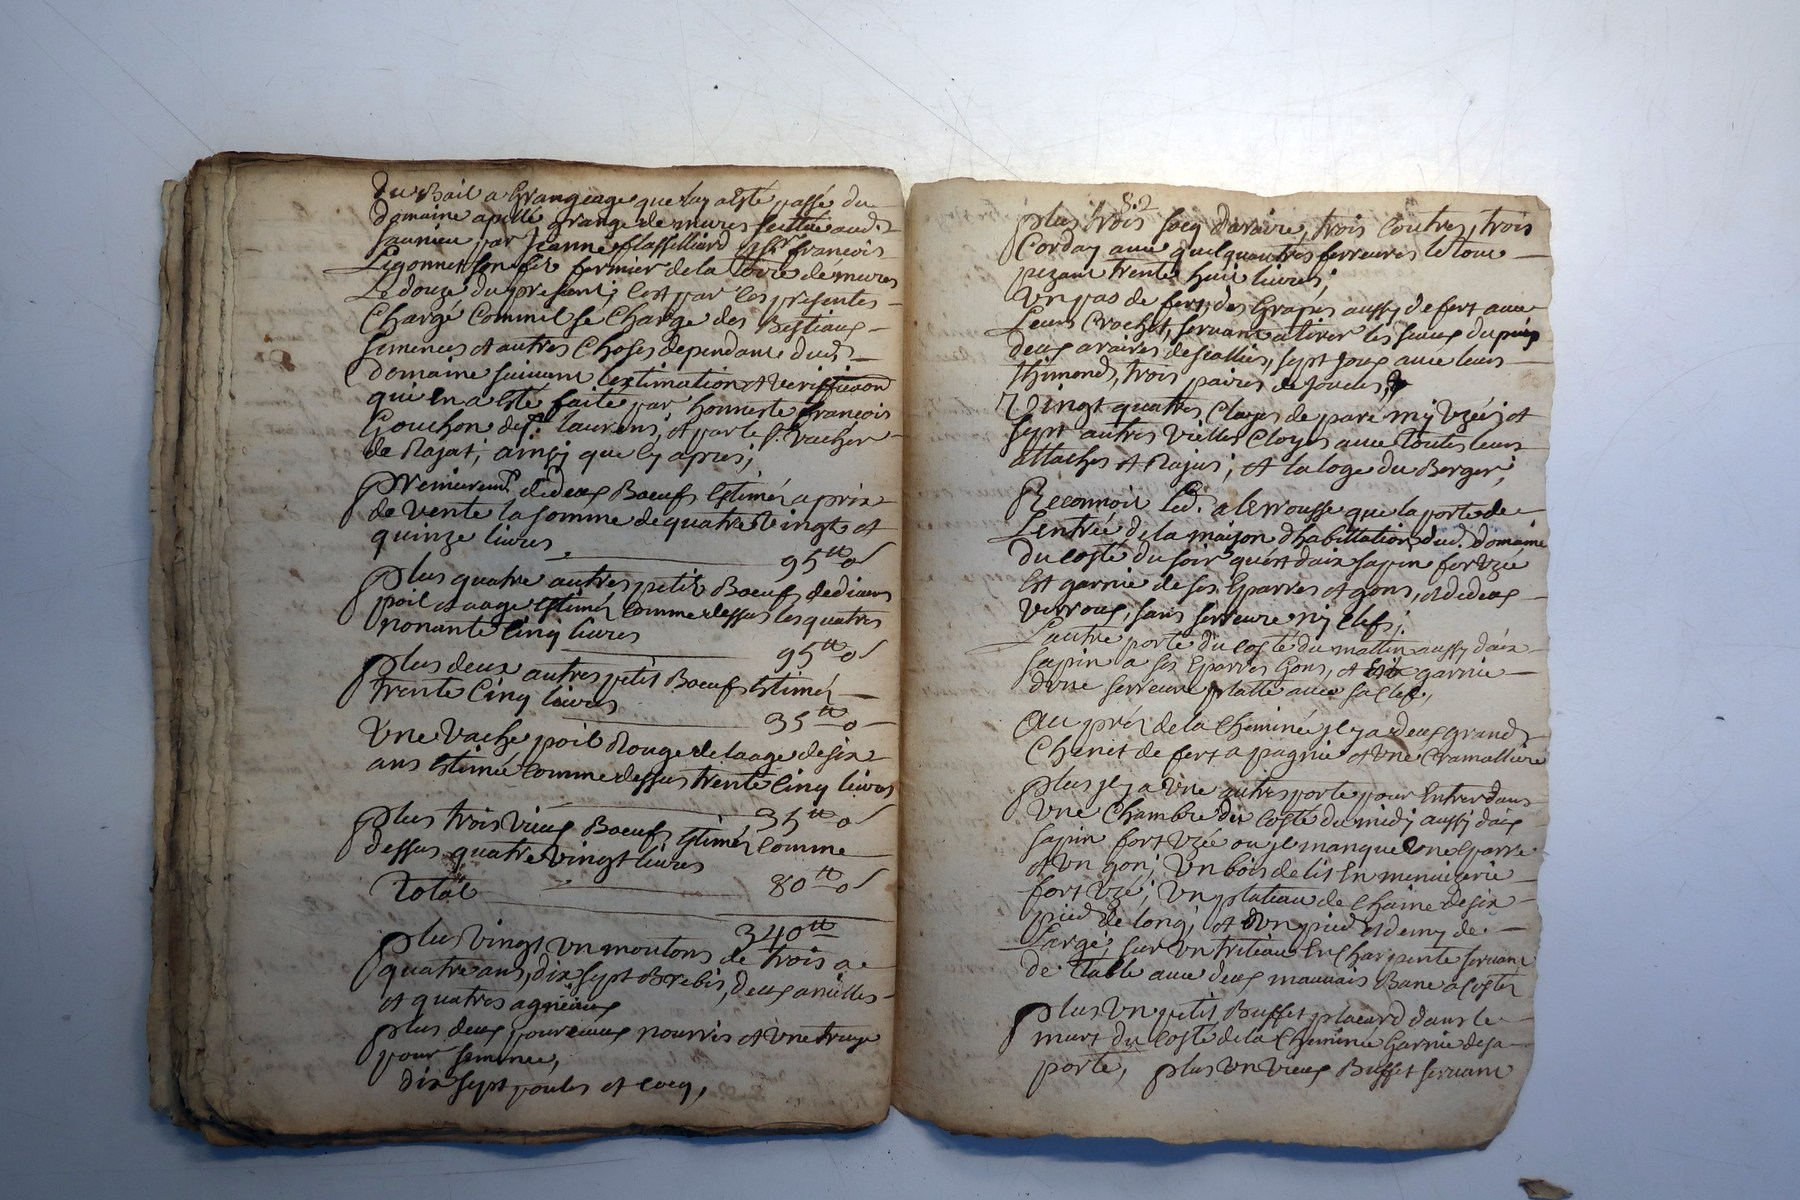 du Bail a Grangeage que luy a esté passé du
domaine apellé grange de mures scittué aud.
saunieu par Jeanne flassilliard & sr. françois
Ligonnet son fis fermier de la terre de mures
Le douzé du presant; c'est par les presentes
Chargé Comme il se Charge des Bestiaux
semences et autres Choses dependant dud.
domaine suivant l'extimation et veriffication
qui en a esté faite par honneste françois
Gouchon de st. laurens, et par le s. vacher
de Rajat, ainsy que cy apres;
premieremt. de deux Boeufs estimés a prix
de vente la somme de quatre vingt et
quinze livres 95 tt 0
Plus quatre autres petit Boeufs de divers
poil et aage estimés comme dessus les quatres
nonante cinq livres 95 tt 0
Plus deux autres petit Boeufs estimés
trente Cinq livres 35 tt 0
Une vache poil Rouge de laage de six
ans estimée comme dessus trente Cinq livres
35 tt 0
plus trois vieux Boeufs estimés comme
dessus quatre vingt livres 80 tt 0
Total
340 tt
plus vingt un moutons de trois a
quatre ans, dix sept Brebis, deux anielles
et quatres agnieaux
plus deux pourceaux nourris et une truye
pour semence,
dix sept poules et cocq,
82
plus trois socq daraire, trois coutres, trois
Corday avec quelquautres ferreures le tout
pezant trente huit livres;
Un pas de fert, des Grapes aussy de fert avec
Leurs Crochet, servant a tirer les seaux du puip
deux araires desiallies, sept joux avec leurs
thimonds, trois paires de joucles,
Vingt quatres cloyes de parc my uzées et
sept autres vielles cloyes avec toutes leurs
attaches et Rajus; et la loge du Berger;
Reconnoit Led. alerousse que la porte de
Lentrée de la maison dhabittation dud. domaine
du costé du soir qu'est daix sapin fort uzée
est garnie de ses Eparres et gons, et de deux
verroux, sans serreure ny clefs;
L'autre porte du costé du mattin aussy d'aix
sapin a ses Eparres Gons, et garnie
d'une serreure platte avec sa clef,
Au prés de la Cheminé jl y a deux grands
Chenet de fert a pagnie et une Cramalliere
plus jl y a une autre porte pour Entrer dans
une Chambre du costé du midy aussy daix
sapin fort uzée ou jl manque une eparre
et un gon; Un bois de lit En menuizerie
fort uzé; Un plateau de Chaine de six
pied de long, et d'un pied et demy de
Large; sur un treteau En Charpente servant
de table avec deux mauvais Banc a costés
plus Un petit Buffet placard dans le
murt du costé de la Cheminé Garnie de sa
porte, plus Un vieux Buffet servant